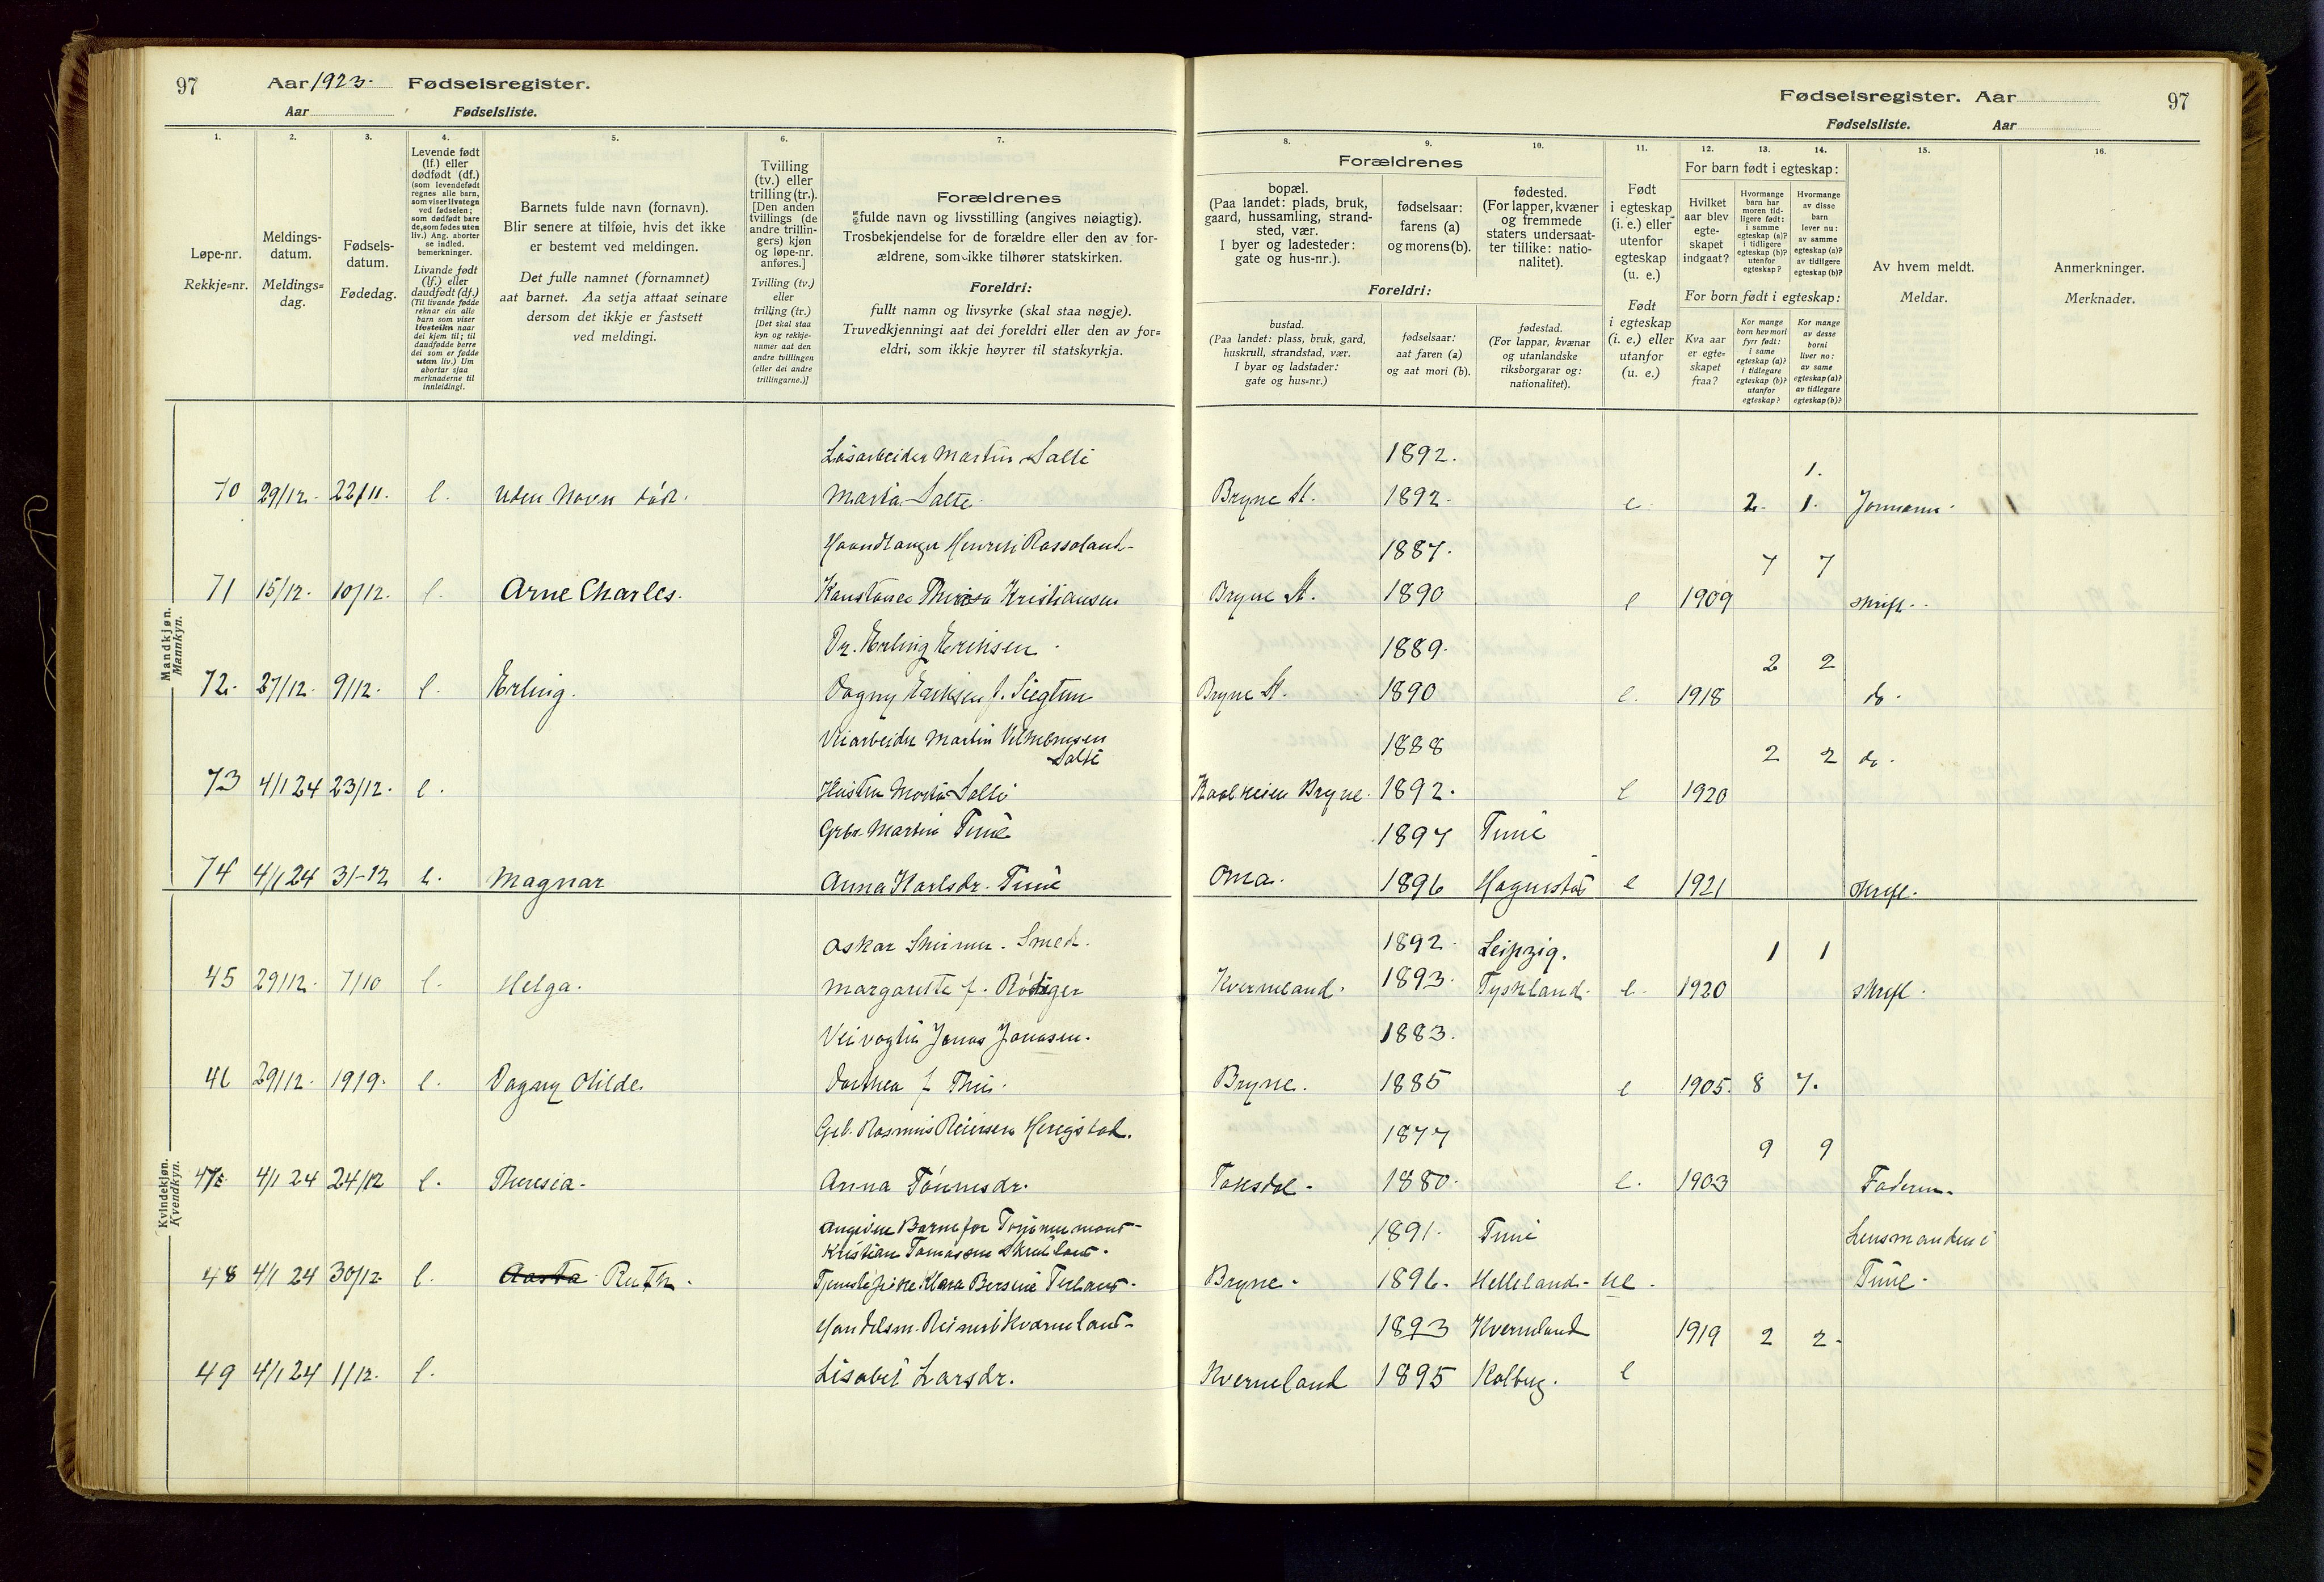 97 Aar 1923. Fødselsregister.
Aar Fødselsliste.
1. 2. 3. 4. 5. 6. 7.
Løpe-nr.
Rekkje=nr.
Meldings-
datum.
Meldings=
dag.
Fødsels-
datum.
Fødedag.
Levende født
(lf.) eller
dødfødt (df.)
(som levendefødt
regnes alle barn,
som viser livstegn
ved fødselen;
som dødfødt bare
de, som fødes uten
liv.) Ang. aborter
se indled.
bemerkninger.
Livande født
(lf.) eller
daudfødt (df.)
(Til livande fødde
reknar ein alle
barn som viser
livsteikn naar
dei kjem til; til
daudfødde berre
dei som er fødde
utan liv.) Um
abortar sjaa
merknaderne til
innleidingi.
Barnets fulde navn (fornavn).
Blir senere at tilføie, hvis det ikke
er bestemt ved meldingen.
Det fulle namnet (fornamnet)
aat barnet. Aa setja attaat seinare
dersom det ikkje er fastsett
ved meldingi.
Tvilling
(tv.) eller
trilling (tr.).
[Den anden
tvillings (de
andre trillin-
gers) kjøn
og løpe-nr.
anføres.]
Tvilling (tv.)
eller
trilling (tr.)
[Det skal staa
kyn og rekkje-
numer aat den
andre tvillingen
(eller dei andre
trillingarne.)]
Forældrenes
fulde navn og livsstilling (angives nøiagtig).
Trosbekjendelse for de forældre eller den av for-
ældrene, som ikke tilhører statskirken.
Foreldri:
fullt namn og livsyrke (skal staa nøgje).
Truvedkjenningi aat dei foreldri eller den av for=
eldri, som ikkje høyrer til statskyrkja.
Fødselsregister. Aar 97
Fødselsliste. Aar
8. 9. 10. 11. 12. 13. 14. 15. 16.
Forældrenes
bopæl.
(Paa landet: plads, bruk,
gaard, hussamling, strand-
sted, vær.
I byer og ladesteder:
gate og hus-nr.).
fødselsaar:
farens (a)
og morens (b).
fødested.
(For lapper, kvæner
og fremmede
staters undersaat-
ter tillike: natio-
nalitet).
Foreldri:
bustad.
(Paa landet: plass, bruk, gard,
huskrull, strandstad, vær.
I byar og ladstader:
gate og hus=nr.)
fødselsaar:
aat faren (a)
og aat mori (b).
fødestad.
(For lappar, kvænar
og utanlandske
riksborgarar og:
nationalitet).
Født
i egteskap
(i. e.) eller
utenfor
egteskap
(u. e.)
Født
i egteskap
(i. e.) eller
utanfor
(u. e.)
For barn født i egteskap:
Hvilket
aar blev
egte-
skapet
indgaat?
Hvormange
barn har
moren tid-
ligere født:
i samme
egteskap (a)?
i tidligere
egteskap (b)?
utenfor
egteskap?
Hvormange
av disse
barn
lever nu:
av samme
egteskap (a)?
av tidligere
egteskap (b)?
For born født i egteskap:
Kva aar
er egte=
skapet
fraa?
Kor mange
born hev mori
fyrr født:
i same
egteskap (a)?
i tidlegare
egteskap (b)?
utanfor
egteskap?
Kor mange
av desse
borni
liver no:
av same
egteskap (a)?
av tidlegare
egteskap (b)?
Av hvem meldt.
Meldar.
Anmerkninger.
Merknader.
Mandkjøn.
Mannkyn.
Løsarbeider Martin Salte 1892. 1.
70 29/12. 22/11. l. uden Navn død. Marta Salte Bryne St. 1892. e 2. 1. Jormoren.
Haandlanger Henrik Rossoland 1887. 7 7
71 15/12. 10/12. l. Arne Charles. Konstanse Theresa Kristiansen Bryne St. 1890 e 1909 skrifl.
Dr. Erling Eriksen 1889. 2 2
72. 27/12. 9/12. l. Erling. Dagny Eriksen f. Siegtun Bryne St. 1890 e. 1918 do.
Veiarbeider Martin Vilhelmsen 1888 2 2 do.
Salte
73 4/1 24 23/12. l. Hustru Marta Salte Bryne. 1892. e 1920
Grbr. Martin Time 1897 Time
74 4/1 24 31-12 l. Magnar Anna Karlsdr. Time Oma. 1896 e 1921 skrifl.
Kvindekjøn.
Kvendkyn.
Oskar Smed. 1892. Leipzig. 1 1
45 29/12. 7/10 l. Helga. Margaretta f. Rödiger Kverneland. 1893. Tyskland. e. 1920 skrifl.
Veivogter Jonas Jonasen. 1883.
46 29/12. 19/9. l. Dagny Otilde. Dorthea f. Thu. Bryne. 1885 e 1905. 8 7.
Gbr. Rasmus Reiersen Herigstad. 1877 9 9
47 4/1 24 24/12 l. Theresia. Anna Tönnesdr. Taksdal. 1880. e. 1903 Faderen.
Angiven Barnefar Tømmermand 1891. Time Lensmanden i
Kristian Tomassen
48 4/1 24 30/12. l. Aasta Ruth. Tjenestepike Klara Bersine Terland. Bryne. 1896. Helleland. ue. Time.
Handelsm. Reinert Kverneland 1893 Kverneland 1919 2 2.
49 4/1 24 1/12. l. Lisabet Larsdr. Kverneland 1895 e